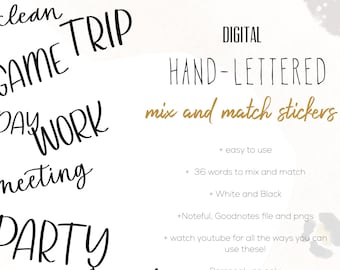 clean
TRIP
GAME
DAY
WORK
meeting
PARTY
DIGITAL
HAND-LETTERED
mix and match stickers
+ easy to use
+ 36 words to mix and match
+ White and Black
+Noteful, Goodnotes file and pngs
+ watch youtube for all the ways you can
use these!